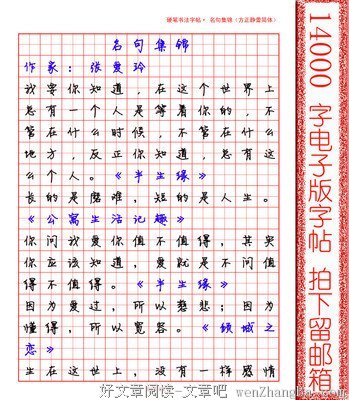 硬笔书法字帖·名句集锦（方正静蕾简体）
名句集锦
作家：张爱玲
我要你知道，在这个世界上
总有一个人是等着你的，不
管在什么时候，不管在什么
地方，反正你知道，总有这
么个人。《半生缘》
长的是磨难，短的是人生。
《公寓生活记趣》
你问我爱你值不值得，其实
你应该知道，爱就是不问值
得不值得。《半生缘》
因为爱过，所以慈悲；因为
懂得，所以宽容。《倾城之
恋》
生在这世上，没有一样感情
14000 字电子版字帖 拍下留邮箱
好文章阅读-文章吧 wenZhangBa.com